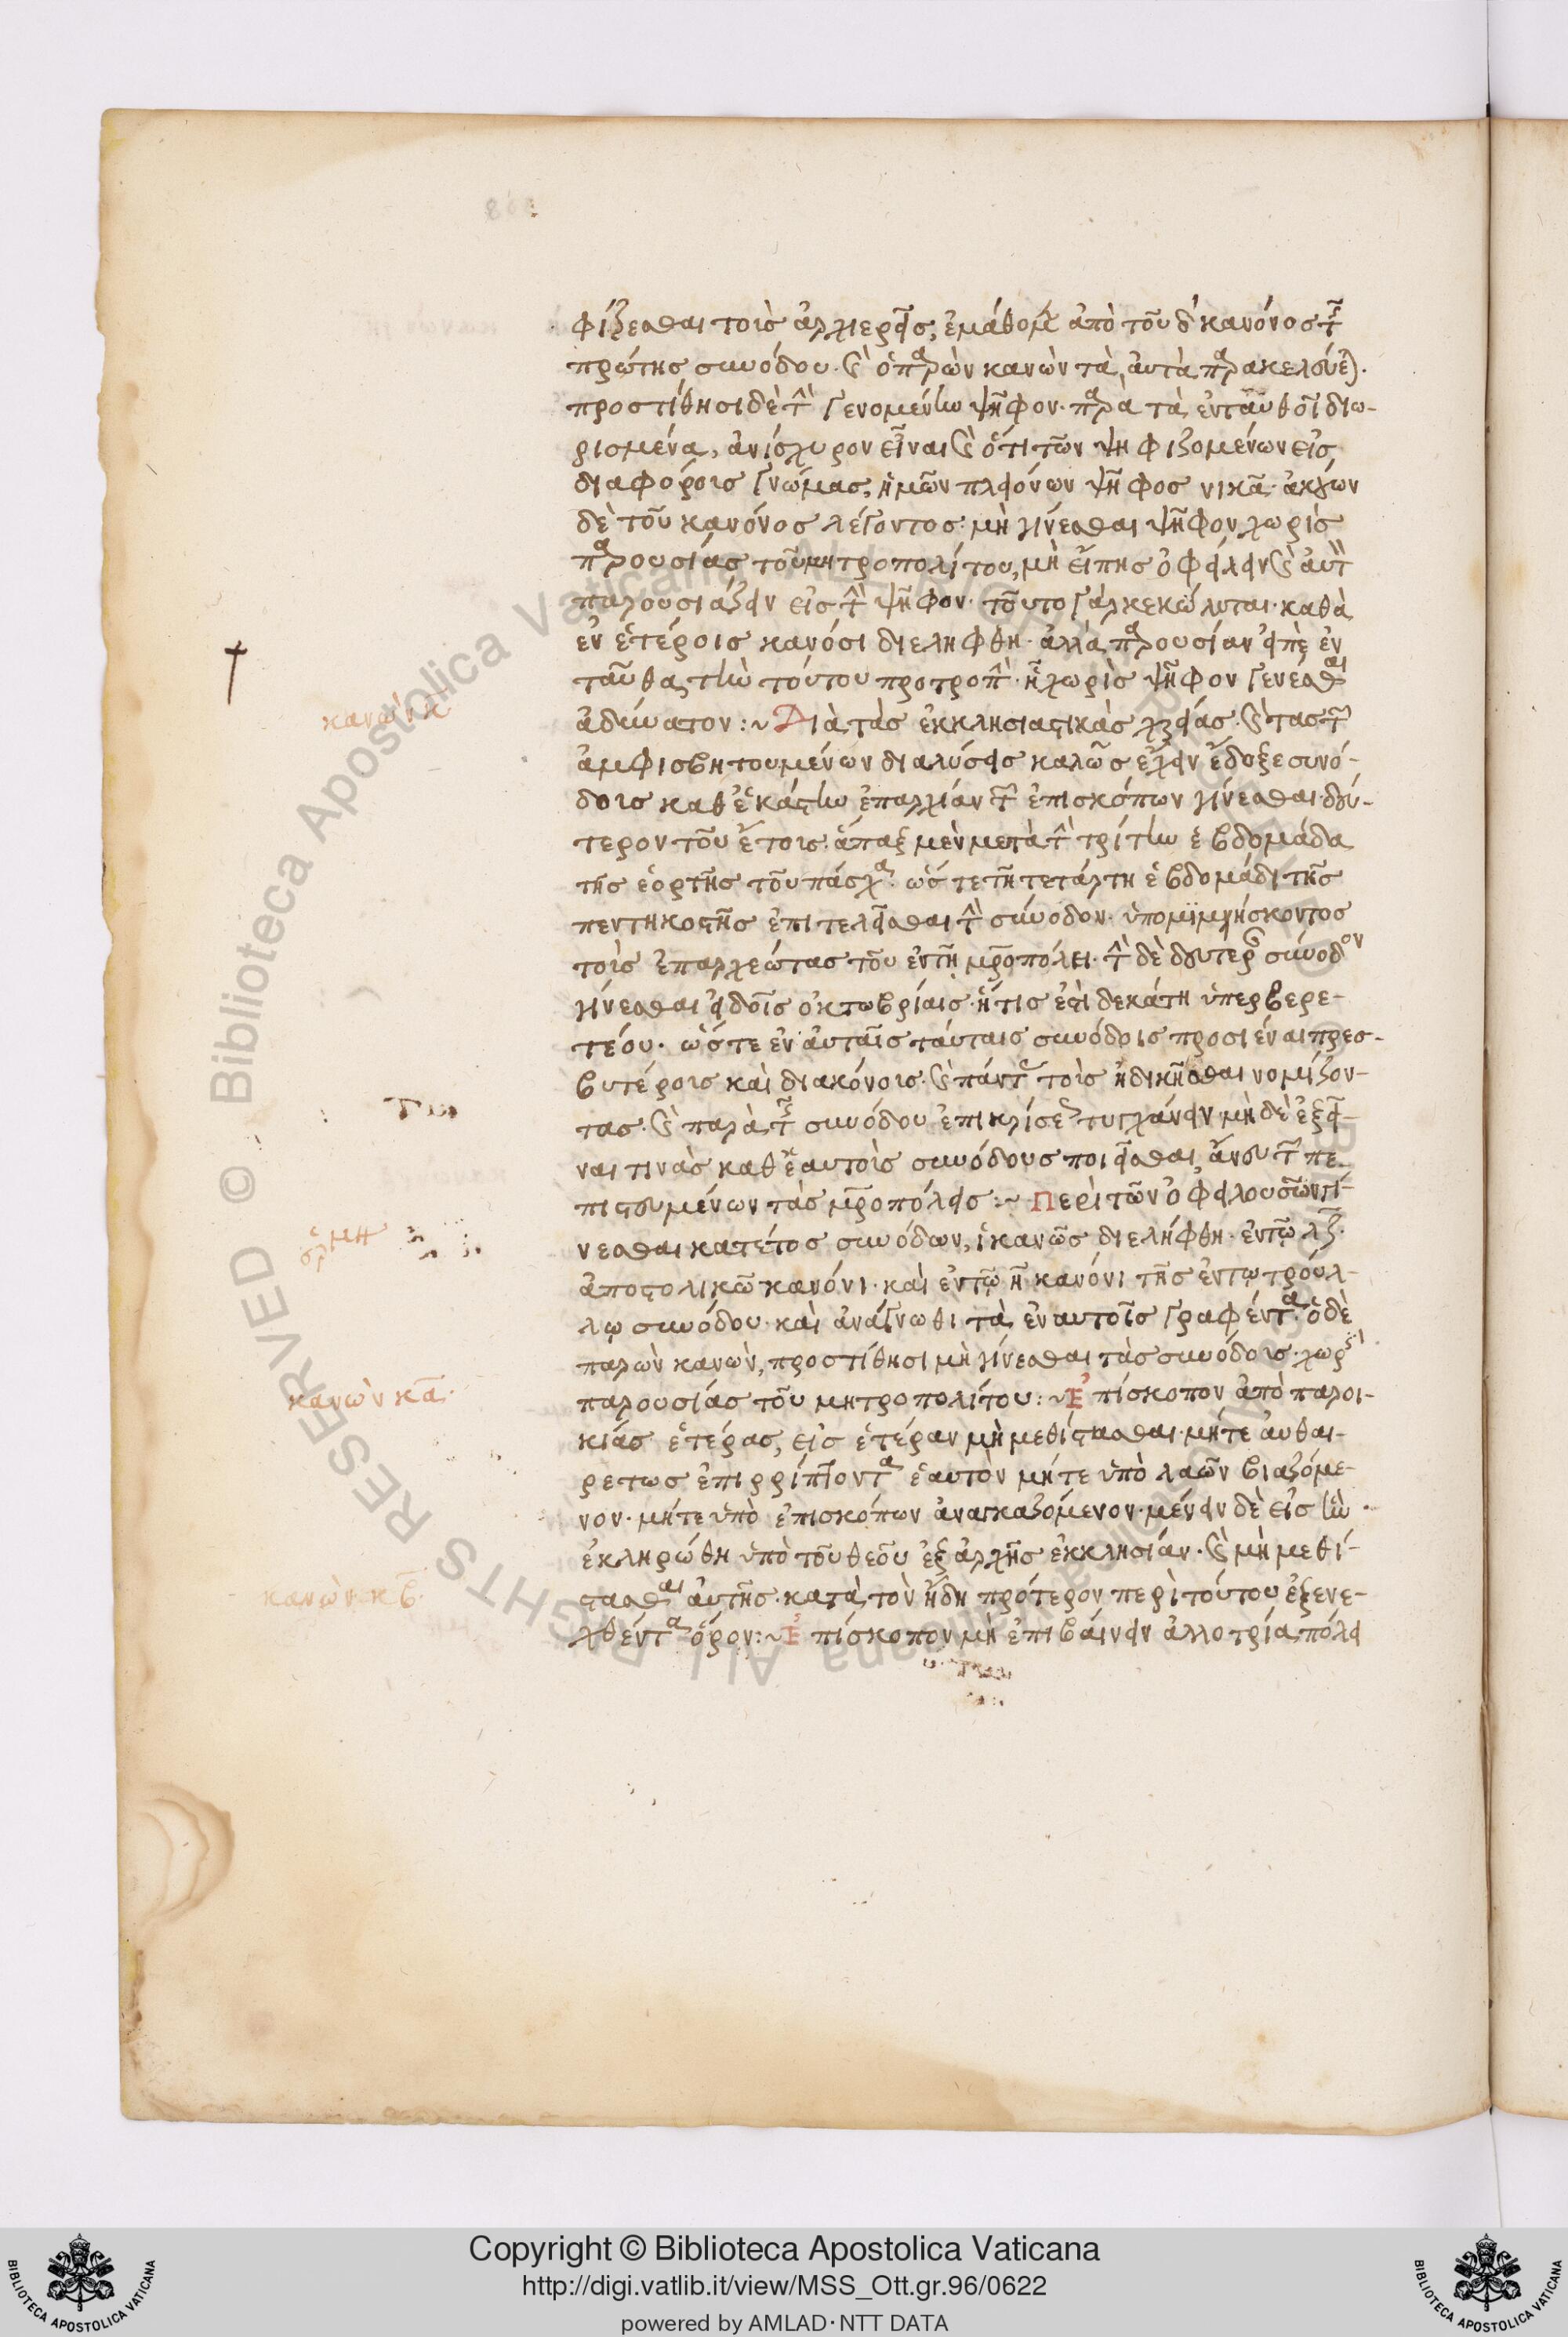 φίζεσθαι τοὺς ἀρχιερεῖς, ἐμάθομεν ἀπὸ τοῦ δ' κανόνος τῆς
πρώτης συνόδου. καὶ ὁ παρὼν κανὼν τὰ αὐτὰ παρακελεύεται.
προστίθησι δὲ τὴν γενομένην ψῆφον παρὰ τὰ ἐνταῦθοῖ διω-
ρισμένα, ἀνίσχυρον εἶναι καὶ ὅτι τῶν ψηφιζομένων εἰς
διαφόρους γνώμας, ἡ μῶν πλειόνων ψῆφος νικᾶ. ἀκούων
δὲ τοῦ κανόνος λέγοντος· μὴ γίνεσθαι ψῆφον χωρὶς
παρουσίας τοῦ μητροπολίτου, μὴ εἴπης ὀφείλειν καὶ αὐτὸν
παρουσιάζειν εἰς τὴν ψῆφον. τοῦτο γὰρ κεκώλυται. καθὰ
ἐν ἑτέροις κανόσι διελήφθη. ἀλλὰ παρουσίαν εἰπὲ ἐν
ταῦθα, τὴν τούτου προτροπὴν. ἧς χωρὶς ψῆφον γενέσθαι
ἀδύνατον :~ Διὰ τὰς ἐκκλησιαστικὰς χρείας. καὶ τὰς τῶν
ἀμφισβητουμένων διαλύσεις καλῶς ἔχειν ἔδοξε συνό-
δους καθ' ἑκάστην ἐπαρχίαν τῶν ἐπισκόπων γίνεσθαι δεύ-
τερον τοῦ ἔτους. ἅπαξ μὲν μετὰ τὴν τρίτην ἑβδομάδα
τῆς ἑορτῆς τοῦ πάσχα. ὥστε τῆ τετάρτη ἑβδομάδι τῆς
πεντηκοστῆς ἐπιτελεῖσθαι τὴν σύνοδον. ὑπομιμνήσκοντος
τοὺς ἐπαρχεώτας τοῦ ἐν τῆ μροπόλει. τὴν δὲ δευτέραν σύνοδον
γίνεσθαι εἰδοῖς ὀκτωβρίαις. ἥτις ἐστὶ δεκάτη ὑπερβερε-
τέου. ὥστε ἐν αὐταῖς ταύταις συνόδοις προσιέναι πρεσ-
βυτέρους καὶ διακόνους. καὶ πάντας τοὺς ἠδικῆσθαι νομίζον-
τας. καὶ παρὰ τῆς συνόδου ἐπικρίσεως τυγχάνειν. μὴ δὲ ἐξεῖ-
ναι τινὰς καθ' ἑαυτοὺς συνόδους ποιεῖσθαι, ἄνευ τῶν πε-
πιστευμένων τὰς μροπόλεις :~ Περὶ τῶν ὀφειλουσῶν γί-
νεσθαι κατέτος συνόδων, ἱκανῶς διελήφθη. ἐν τῷ λζ.
ἀποστολικῶ κανόνι. καὶ ἐν τῷ η κανόνι τῆς ἐν τῳ τρούλ-
λῳ συνόδου. καὶ ἀνάγνωθι τὰ ἐν αυτοῖς γραφέντα. ὁ δὲ
παρὼν κανὼν, προστίθησι μὴ γίνεσθαι τὰς συνόδους. χωρὶς
παρουσίας τοῦ μητροπολίτου :~ Ἐπίσκοπον ἀπὸ παροι-
κίας ἑτέρας, εἰς ἑτέραν μὴ μεθίστασθαι. μήτε αὐθαι-
ρετως ἐπιρρίπτοντα ἑαυτὸν μήτε ὑπὸ λαῶν βιαζόμε-
νον. μήτε ὑπὸ ἐπισκόπων ἀναγκαζόμενον. μένειν δὲ εἰς ἣν
ἐκληρώθη ὑπὸ τοῦ θεοῦ ἐξ ἀρχῆς ἐκκλησίαν. καὶ μὴ μεθί-
στασθαι αὐτῆς. κατὰ τὸν ἤδη πρότερον περὶ τούτου ἐξενε-
χθέντα ὅρον :~ Ἐπίσκοπον μὴ ἐπιβαίνειν ἀλλοτρία πόλει
κανὼν κ
κανὼν κα.
κανὼν κβ.
Copyright © Biblioteca Apostolica Vaticana
http://digi.vatlib.it/view/MSS_Ott.gr.96/0622
powered by AMLAD·NTT DATA